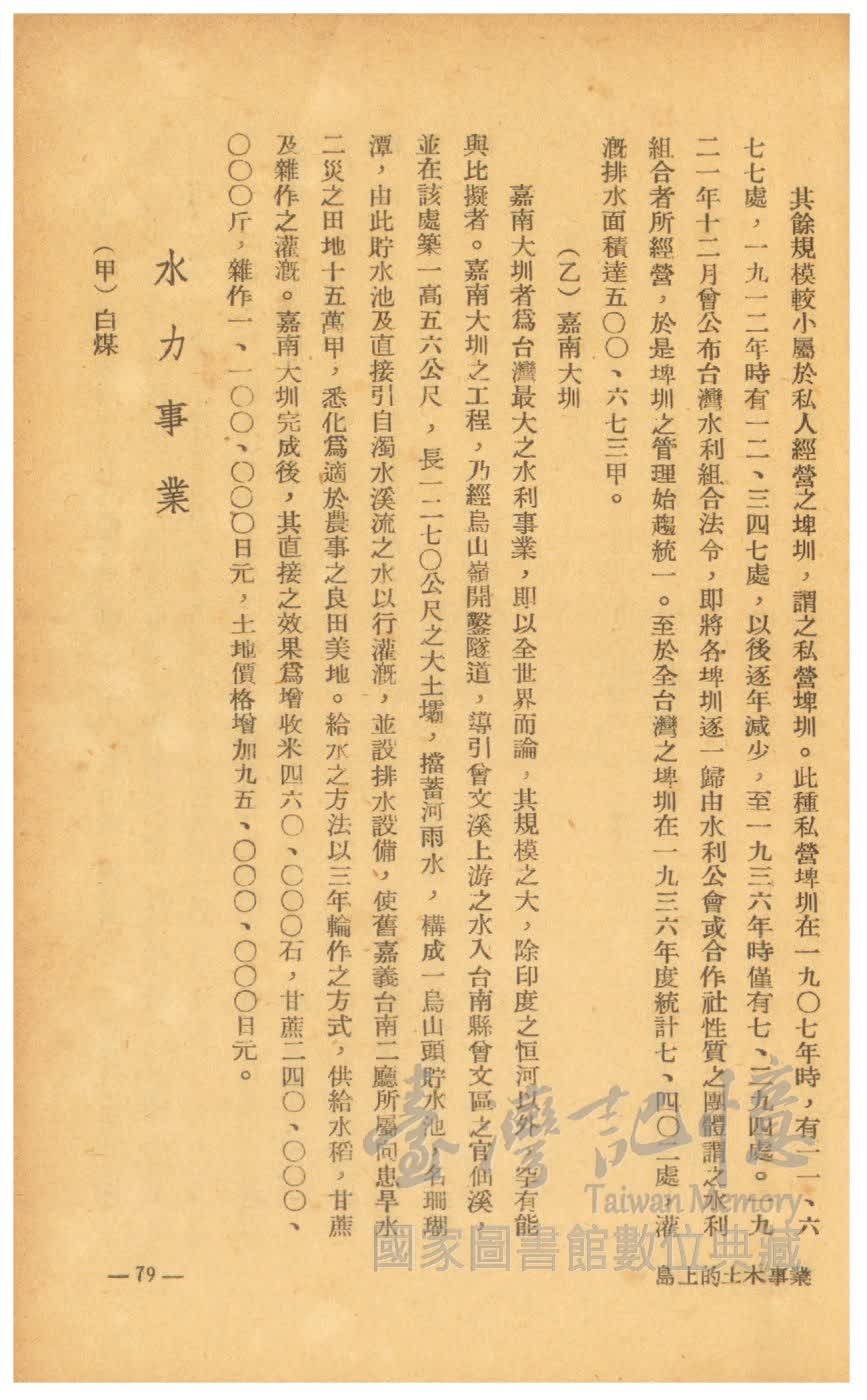 其餘規模較小屬於私人經營之埤圳，謂之私營埤圳。此種私營埤圳在一九〇七年時，有一一、六
七七處，一九一二年時有一二、三四七處，以後逐年減少，至一九三六年時僅有七、二九四處。一九
二一年十二月曾公布台灣水利組合法令，即將各埤圳逐一歸由水利公會或合作社性質之團體謂之水利
組合者所經營，於是埤圳之管理始趨統一。至於全台灣之埤圳在一九三六年度統計七、四〇二處，灌
溉排水面積達五〇〇、六七三甲。
（乙）嘉南大圳
嘉南大圳者為台灣最大之水利事業，即以全世界而論，其規模之大，除印度之恒河以外，罕有能
與比擬者。嘉南大圳之工程，乃經烏山嶺開鑿隧道，導引曾文溪上游之水入台南縣曾文區之官佃溪，
並在該處築一高五六公尺，長一二七〇公尺之大土壩，擋蓄河雨水，構成一烏山頭貯水池，名珊瑚
潭，由此貯水池及直接引自濁水溪流之水以行灌溉，並設排水設備，使舊嘉義台南二廳所屬向患旱水
二災之田地十五萬甲，悉化為適於農事之良田美地。給水之方法以三年輪作之方式，供給水稻，甘蔗
及雜作之灌溉。嘉南大圳完成後，其直接之效果為增收米四六〇、〇〇〇石，甘蔗二四〇、〇〇〇、
〇〇〇斤，雜作一、一〇〇、〇〇〇日元，土地價格增加九五、〇〇〇、〇〇〇日元。
水力事業
（甲）白煤
島上的土木事業
—79—
臺灣記憶
Taiwan Memory
國家圖書館數位典藏